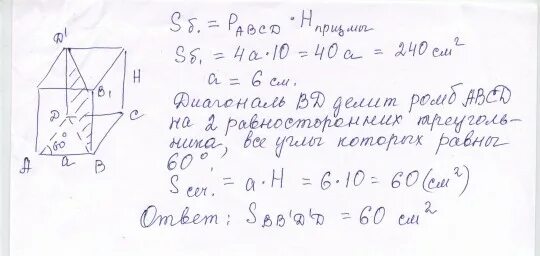 Sб. = PABCD · Hпризмы
Sб. = 4a·10 = 40a = 240 см²
a = 6 см.
Диагональ BD делит ромб ABCD
на 2 равносторонних треуголь-
ника, все углы которых равны
60°.
Sсеч. = a·H = 6·10 = 60 (см²)
Ответ: SBB'D'D = 60 см²
D'
H
B₁
D
C
60°
A
a
B